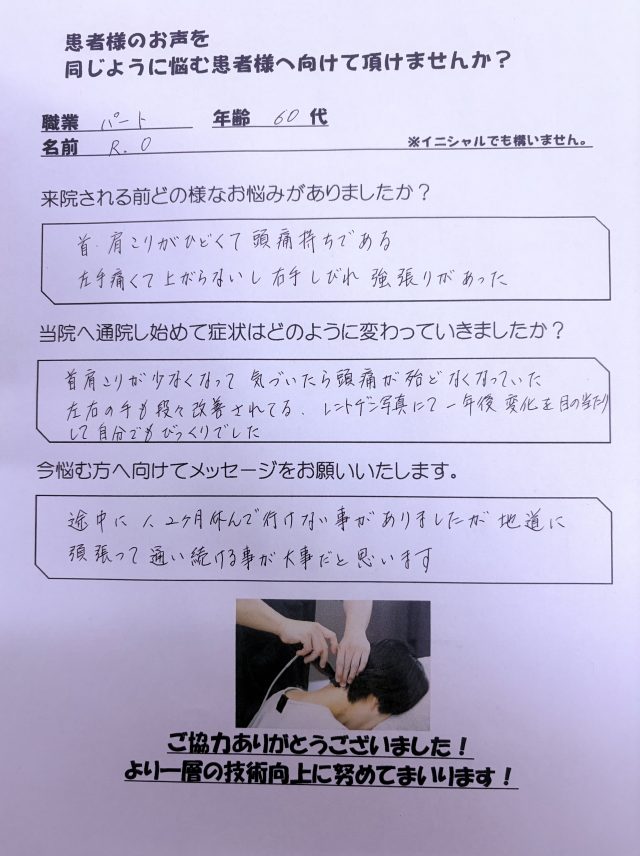 患者様のお声を
同じように悩む患者様へ向けて頂けませんか？
職業 パート 年齢 60代
名前 R.O ※イニシャルでも構いません。
来院される前どの様なお悩みがありましたか？
首・肩こりがひどくて頭痛持ちである
左手痛くて上がらないし右手しびれ強張りがあった
当院へ通院し始めて症状はどのように変わっていきましたか？
首肩こりが少なくなって気づいたら頭痛が殆どなくなっていた
左右の手も段々改善されてる、レントゲン写真にて一年後変化を目の当たり
して自分でもびっくりでした
今悩む方へ向けてメッセージをお願いいたします。
途中に1、2ヶ月休んで行けない事がありましたが地道に
頑張って通い続ける事が大事だと思います
ご協力ありがとうございました！
より一層の技術向上に努めてまいります！